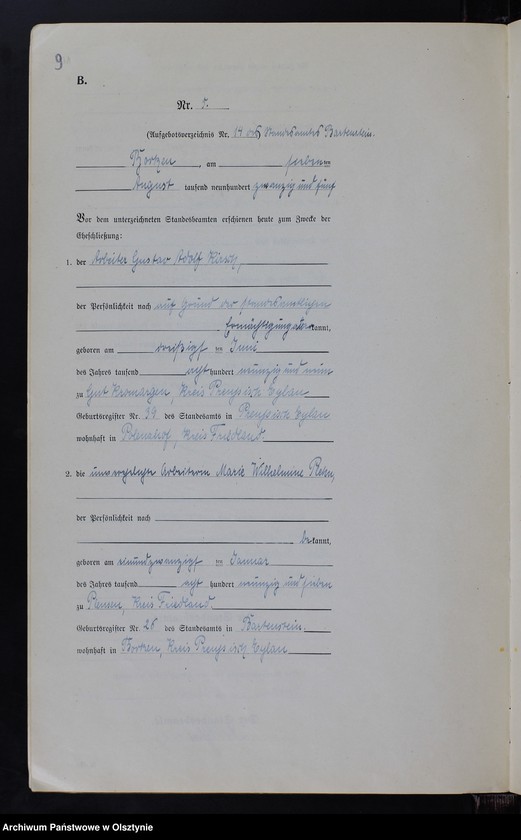 9
B.
Nr. 5.
(Aufgebotsverzeichnis Nr. 19 des Standesamtes Bartenstein.
Borken, am sieben ten
August tausend neunhundert zwanzig und fünf
Vor dem unterzeichneten Standesbeamten erschienen heute zum Zwecke der
Eheschließung:
1. der Arbeiter Gustav Adolf Kirsch,
der Persönlichkeit nach auf Grund der standesamtlichen
Ermächtigung anerkannt,
geboren am dreißigst ten Juni
des Jahres tausend acht hundert neunzig und neun
zu Gut, Kreis Preußisch Eylau
Geburtsregister Nr. des Standesamts in Preußisch Eylau
wohnhaft in, Kreis Friedland.
2. die Arbeiterin Marie Wilhelmine
der Persönlichkeit nach
bekannt,
geboren am einundzwanzigst ten Januar
des Jahres tausend acht hundert neunzig und sieben
zu, Kreis Friedland.
Geburtsregister Nr. 26 des Standesamts in Bartenstein.
wohnhaft in Borken, Kreis Preußisch Eylau
Archiwum Państwowe w Olsztynie